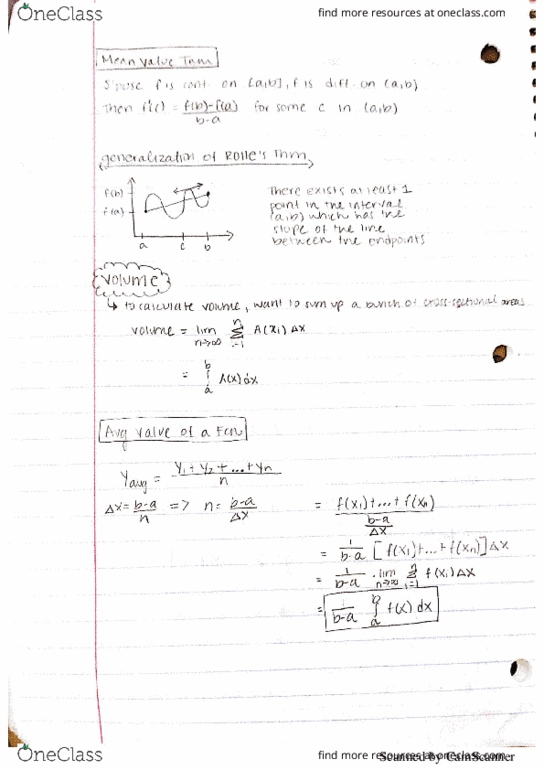 OneClass
find more resources at oneclass.com
Mean Value Thm
S'pose f is cont. on [a,b], f is diff. on (a,b)
Then f'(c) = f(b)-f(a) / b-a for some c in (a,b)
generalization of Rolle's Thm
f(b)
f(a)
a c b
There exists at least 1
point in the interval
(a,b) which has the
slope of the line
between the endpoints
Volume
↳ to calculate volume, want to sum up a bunch of cross-sectional areas
volume = lim n→∞ n Σ i=1 A(xi) Δx
= b ∫ a A(x) dx
Avg value of a Fcn
Yavg = Y1 + Y2 + ... + Yn / n
Δx = b-a / n => n = b-a / Δx
= f(x1)+...+f(xn) / b-a / Δx
= 1 / b-a [f(x1)+...+f(xn)] Δx
= 1 / b-a · lim n→∞ n Σ i=1 f(xi) Δx
= 1 / b-a b ∫ a f(x) dx
OneClass
find more resources at oneclass.com
Scanned by CamScanner